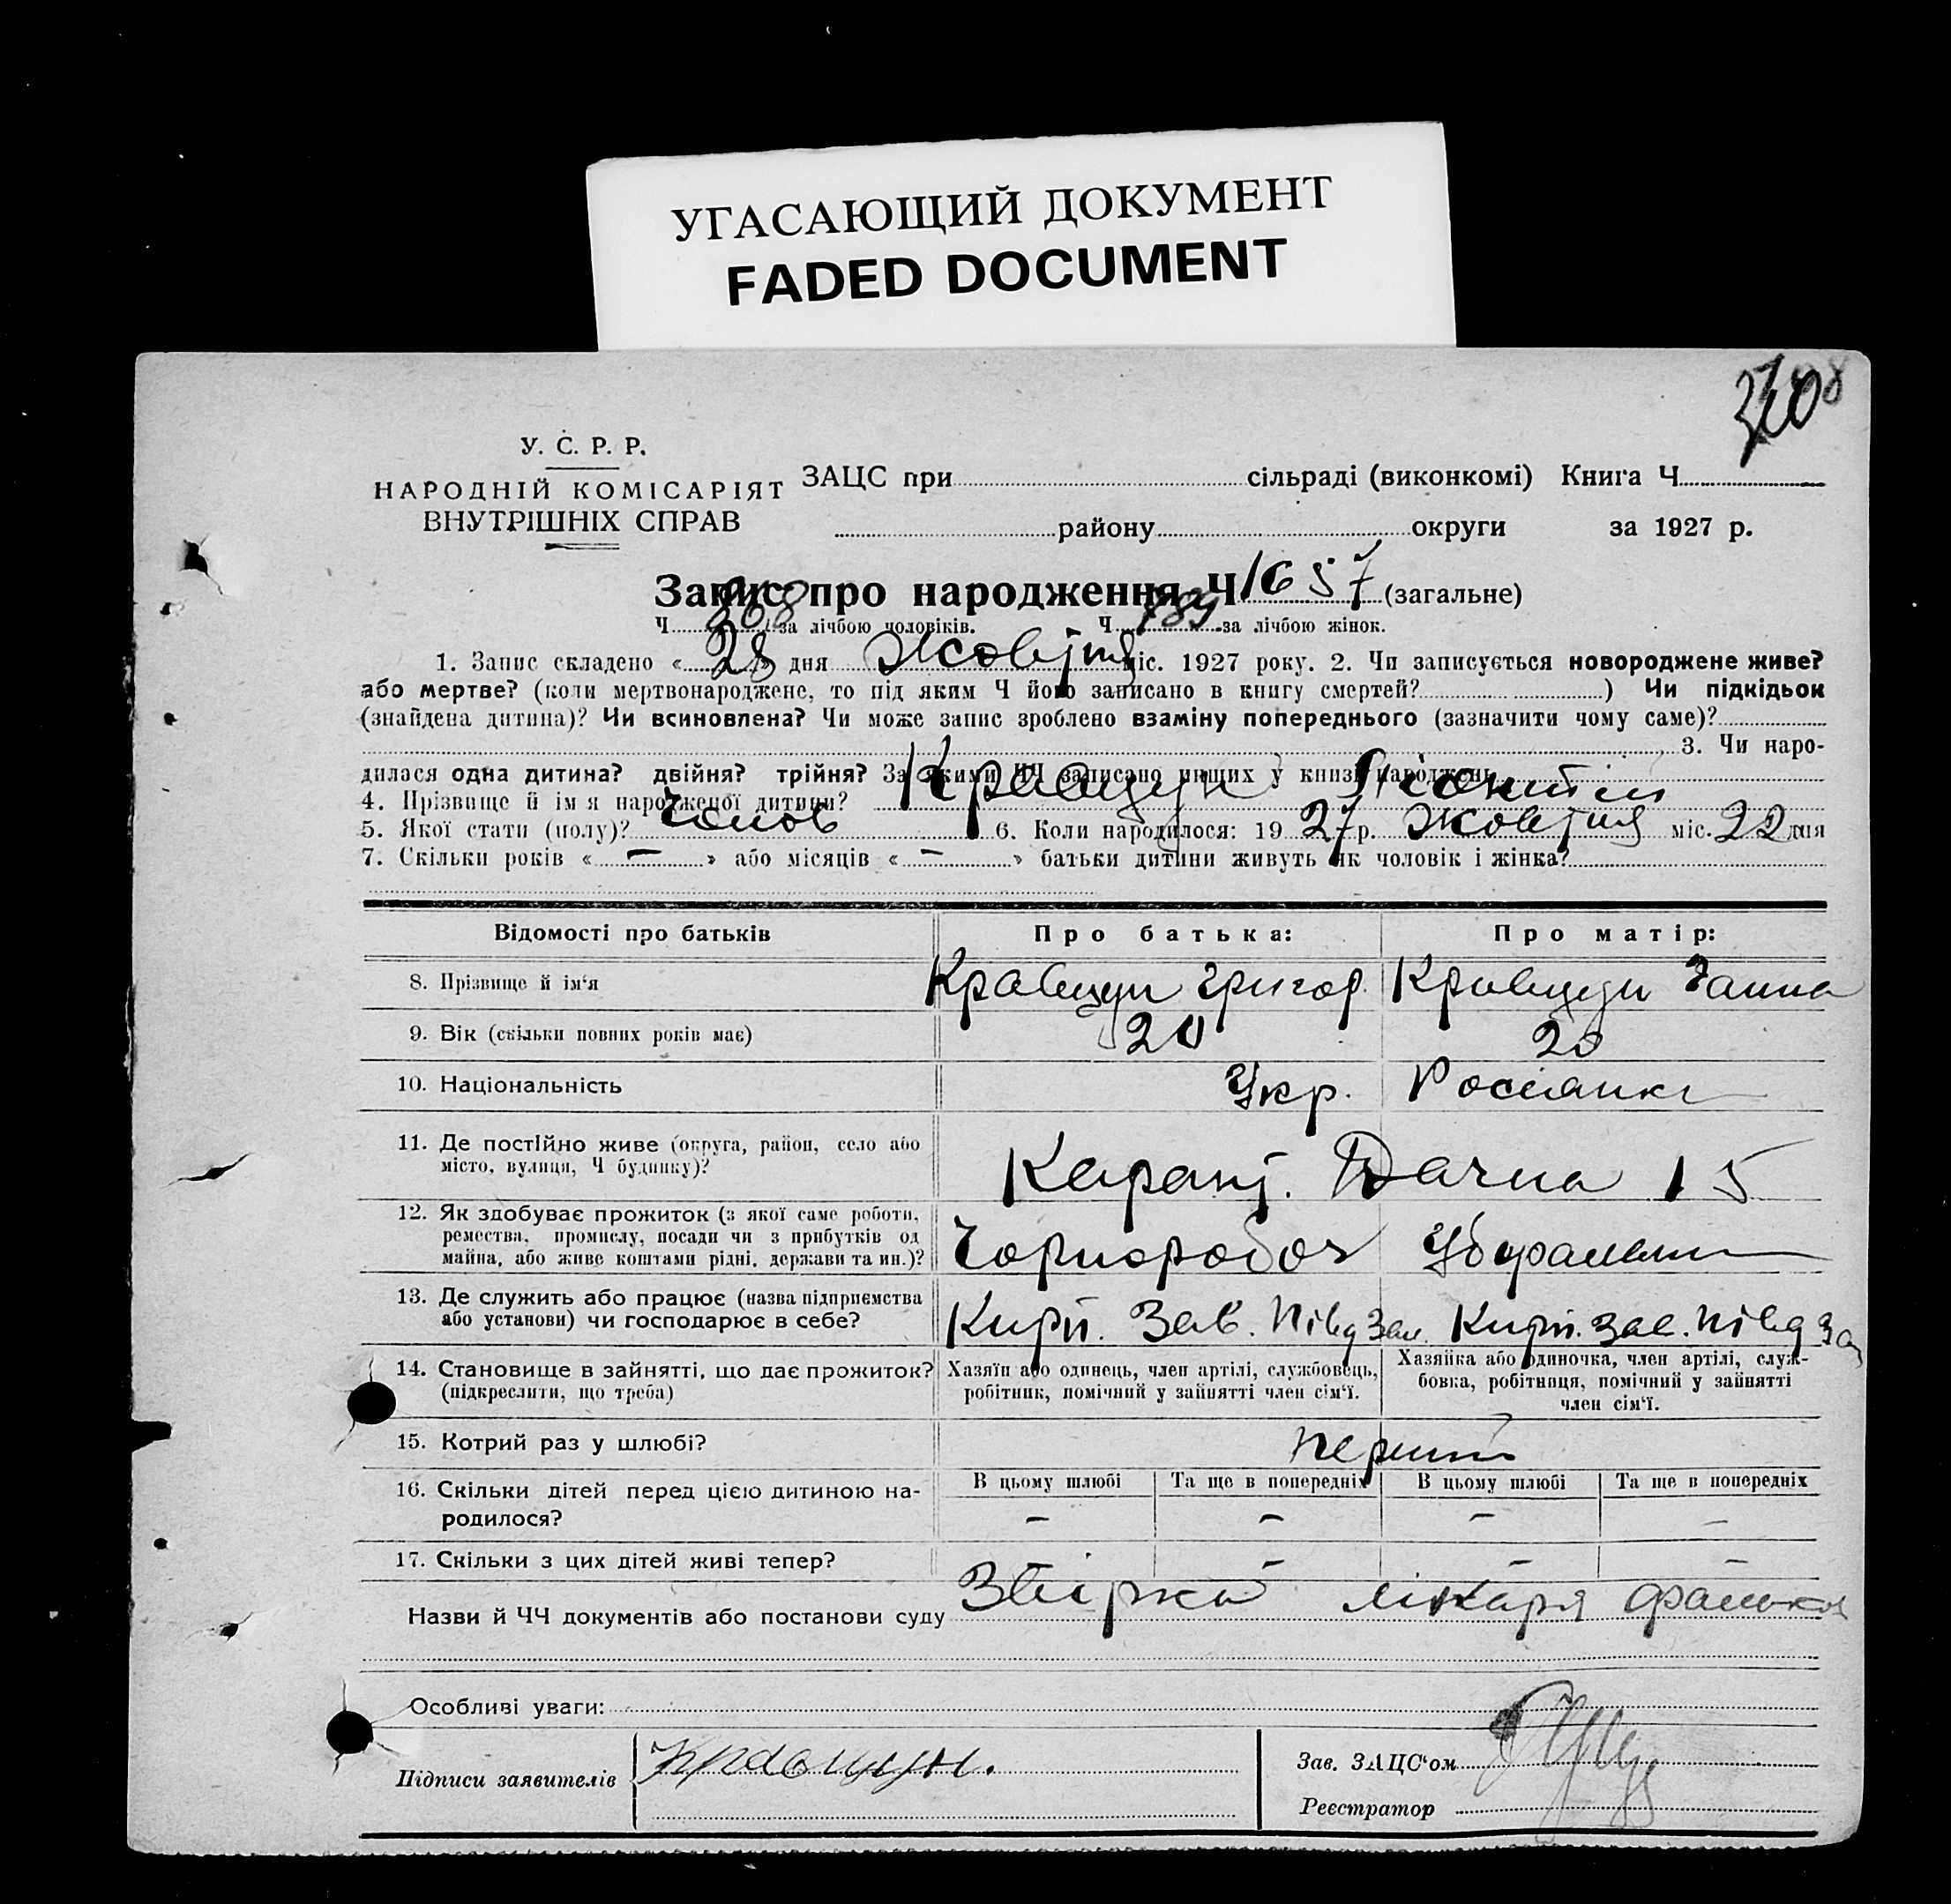 УГАСАЮЩИЙ ДОКУМЕНТ
FADED DOCUMENT
У. С. Р. Р.
НАРОДНІЙ КОМІСАРІЯТ
ВНУТРІШНІХ СПРАВ
ЗАЦС при сільраді (виконкомі) Книга Ч
району округи за 1927 р.
Запис про народження Ч 1657 (загальне)
Ч 868 за лічбою чоловіків. Ч 789 за лічбою жінок.
1. Запис складено « 28 » дня Жовтня міс. 1927 року. 2. Чи записується новороджене живе?
або мертве? (коли мертвонароджене, то під яким Ч його записано в книгу смертей? ) Чи підкідьок
(знайдена дитина)? Чи всиновлена? Чи може запис зроблено взаміну попереднього (зазначити чому саме)?
3. Чи наро-
дилася одна дитина? двійня? трійня? За якими ЧЧ записано инших у книзі народжень
4. Прізвище й ім я народженої дитини? Кравцун
5. Якої стати (полу)? Чолов 6. Коли народилося: 19 27 р. Жовтня міс. 22 дня
7. Скільки років « — » або місяців « — » батьки дитини живуть як чоловік і жінка?
Відомості про батьків Про батька: Про матір:
8. Прізвище й ім'я Кравцун Григор. Кравцун Ганна
9. Вік (скільки повних років має) 20 20
10. Національність Укр. Росіянка
11. Де постійно живе (округа, район, село або
місто, вулиця, Ч будинку)? Карант. Дачна 15
12. Як здобуває прожиток (з якої саме роботи,
ремества, промислу, посади чи з прибутків од
майна, або живе коштами рідні, держави та ин.)? Чорнороб
13. Де служить або працює (назва підприємства
або установи) чи господарює в себе? Кирп. Зав. Півд Зал. Кирп. Зав. Півд За
14. Становище в зайнятті, що дає прожиток?
(підкреслити, що треба)
Хазяїн або одинець, член артілі, службовець,
робітник, помічний у зайнятті член сім'ї.
Хазяйка або одиночка, член артілі, служ-
бовка, робітниця, помічний у зайнятті
член сім'ї.
15. Котрий раз у шлюбі? перший
16. Скільки дітей перед цією дитиною на-
родилося?
В цьому шлюбі Та ще в попередніх В цьому шлюбі Та ще в попередніх
— — — —
17. Скільки з цих дітей живі тепер? — — — —
Назви й ЧЧ документів або постанови суду лікаря
Особливі уваги:
Підписи заявителів Кравцун.
Зав. ЗАЦС'ом
Реєстратор